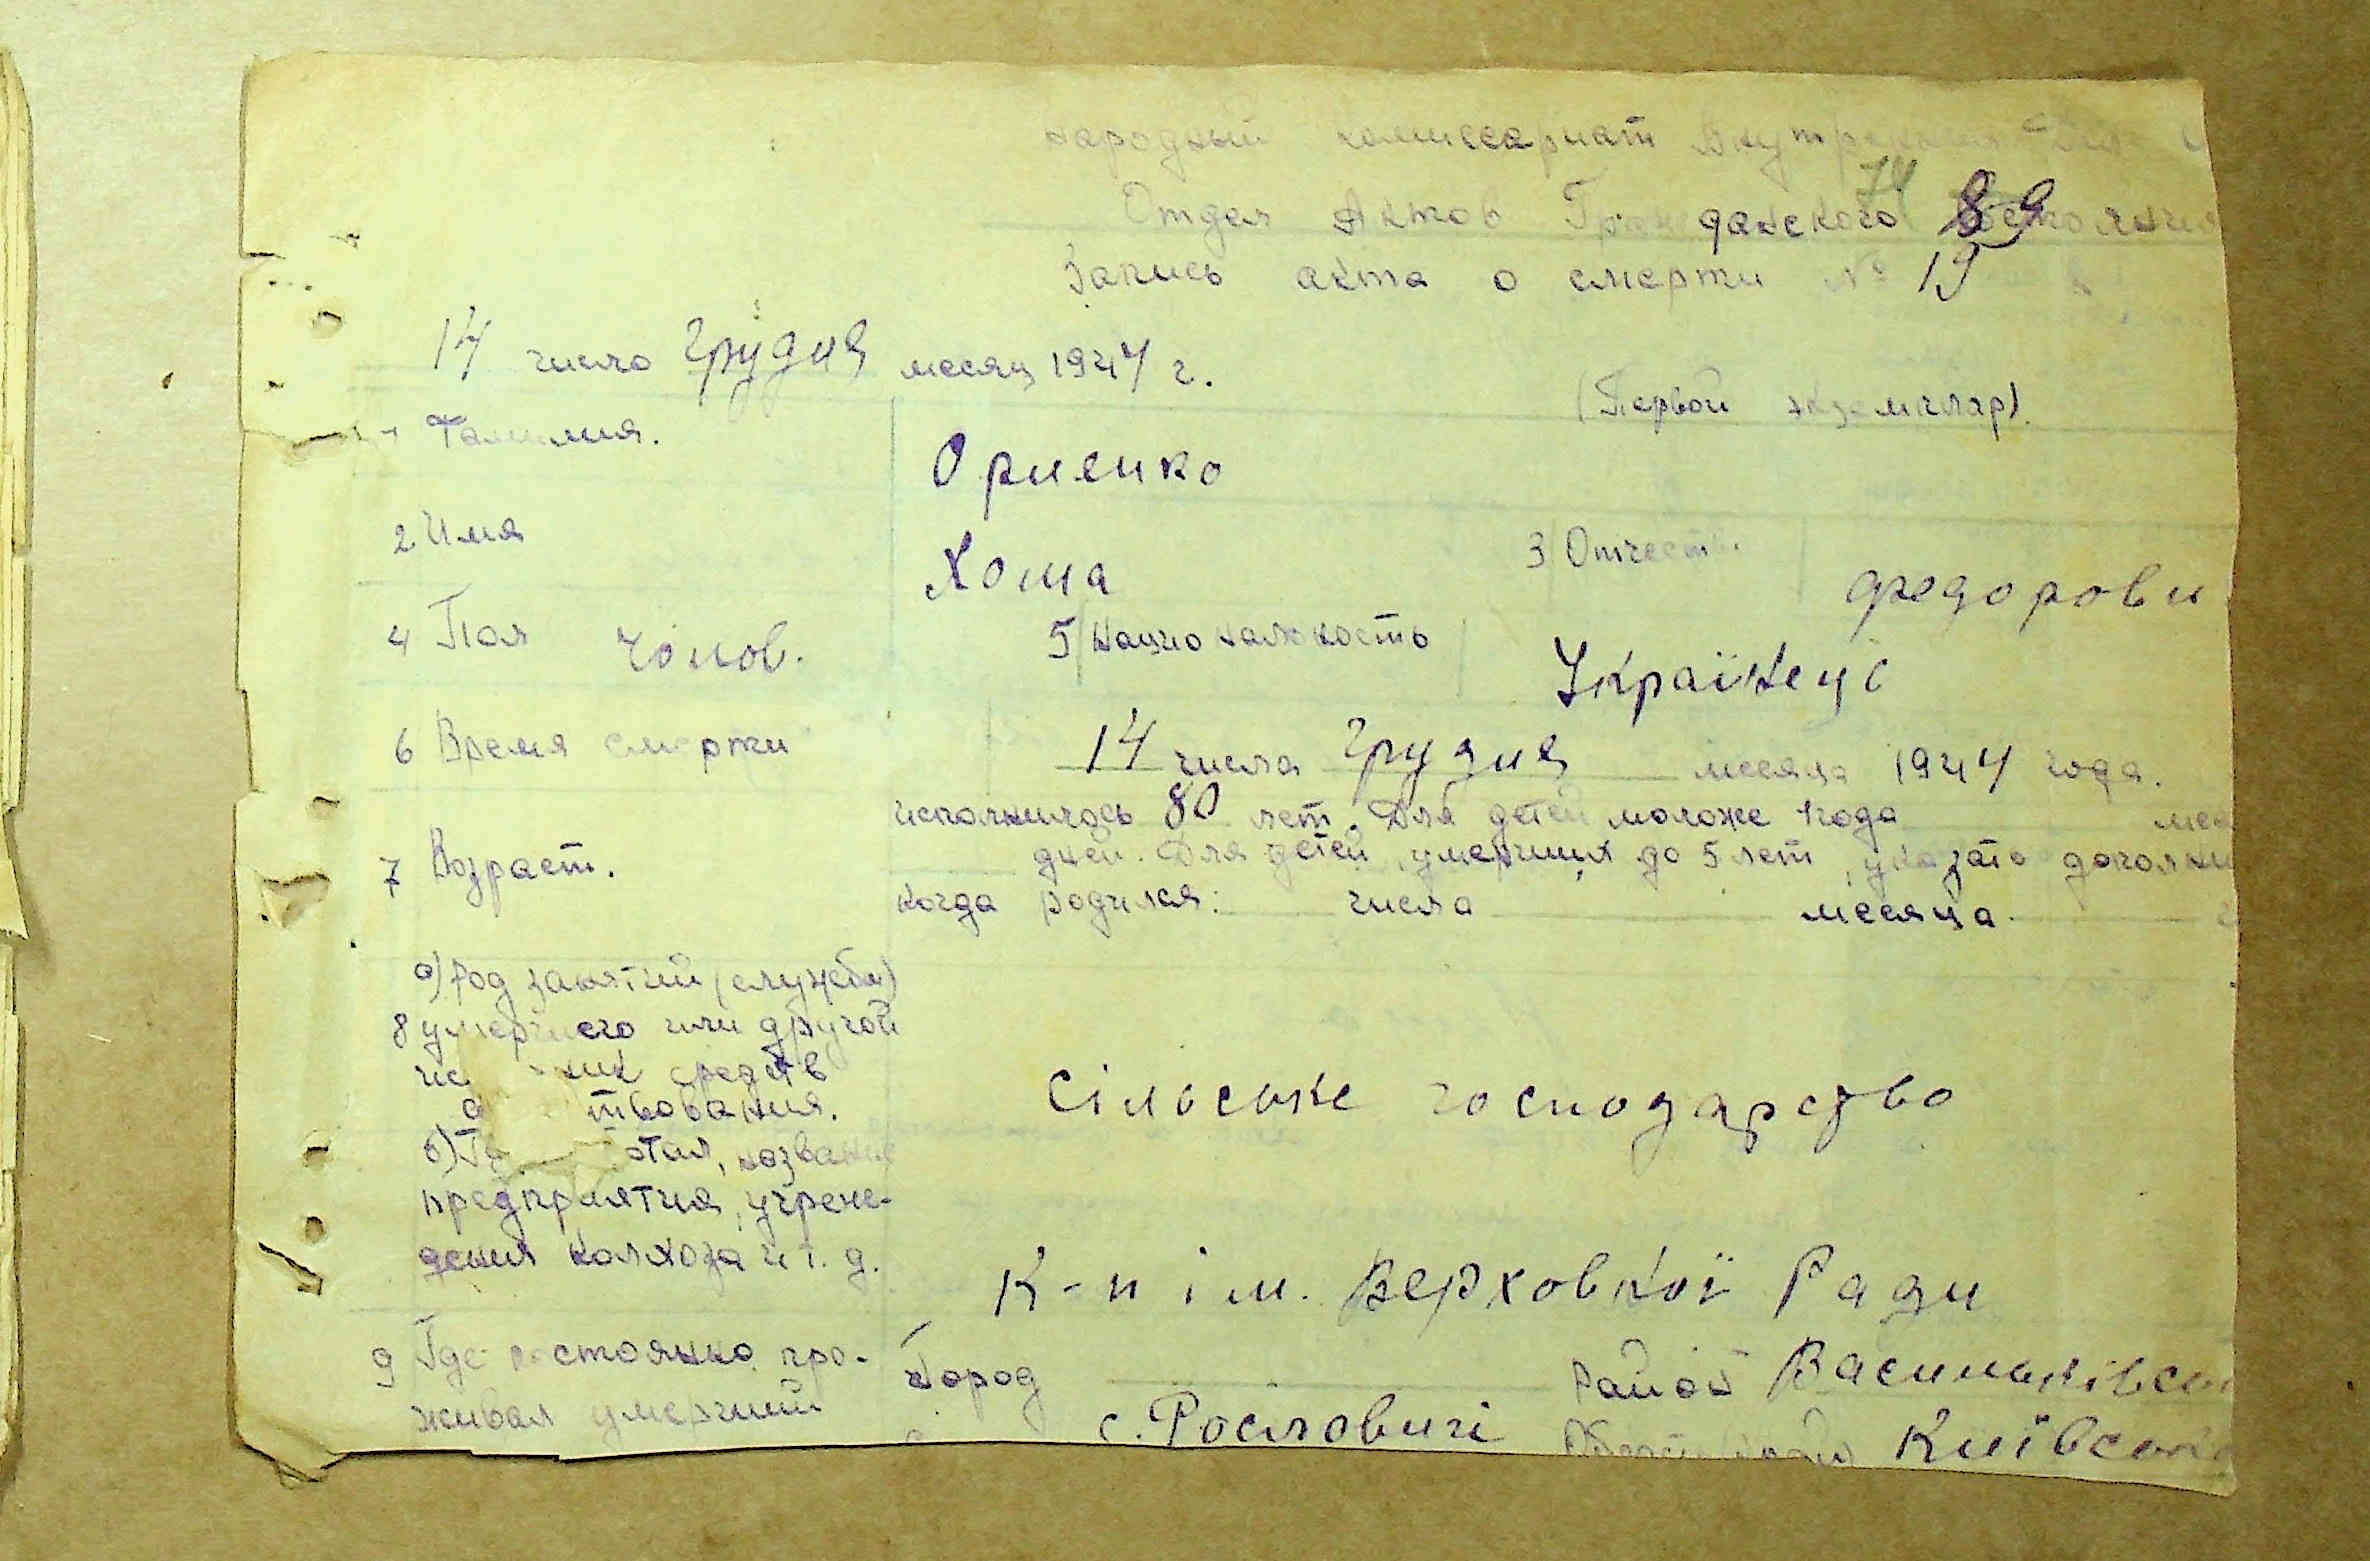 Народный комиссариат Внутренних Дел
74 89
Отдел Актов Гражданского Состояния
Запись акта о смерти № 19
14 число Грудня месяц 1944 г.
(Первой экземпляр).
1 Фамилия.
Ориенко
2 Имя
Хома
3 Отчеств.
Федорови
4 Пол чолов.
5 Национальность
Українец
6 Время смерти
14 числа Грудня месяца 1944 года.
7 Возраст.
исполнилось 80 лет. Для детей моложе 1 года мес
дней. Для детей, умерших до 5 лет, указать дополни
когда родился: числа месяца
а) Род занятий (служба)
8 умершего или другой
ис ник средств
ствования.
сільське господарство
б) Г отал, название
предприятия, учреж-
дения колхоза и т. д.
К-п ім. Верховной Ради
9 Где постоянно про-
живал умерший
Город
Район Васильківськ
с. Рославичі
Київська